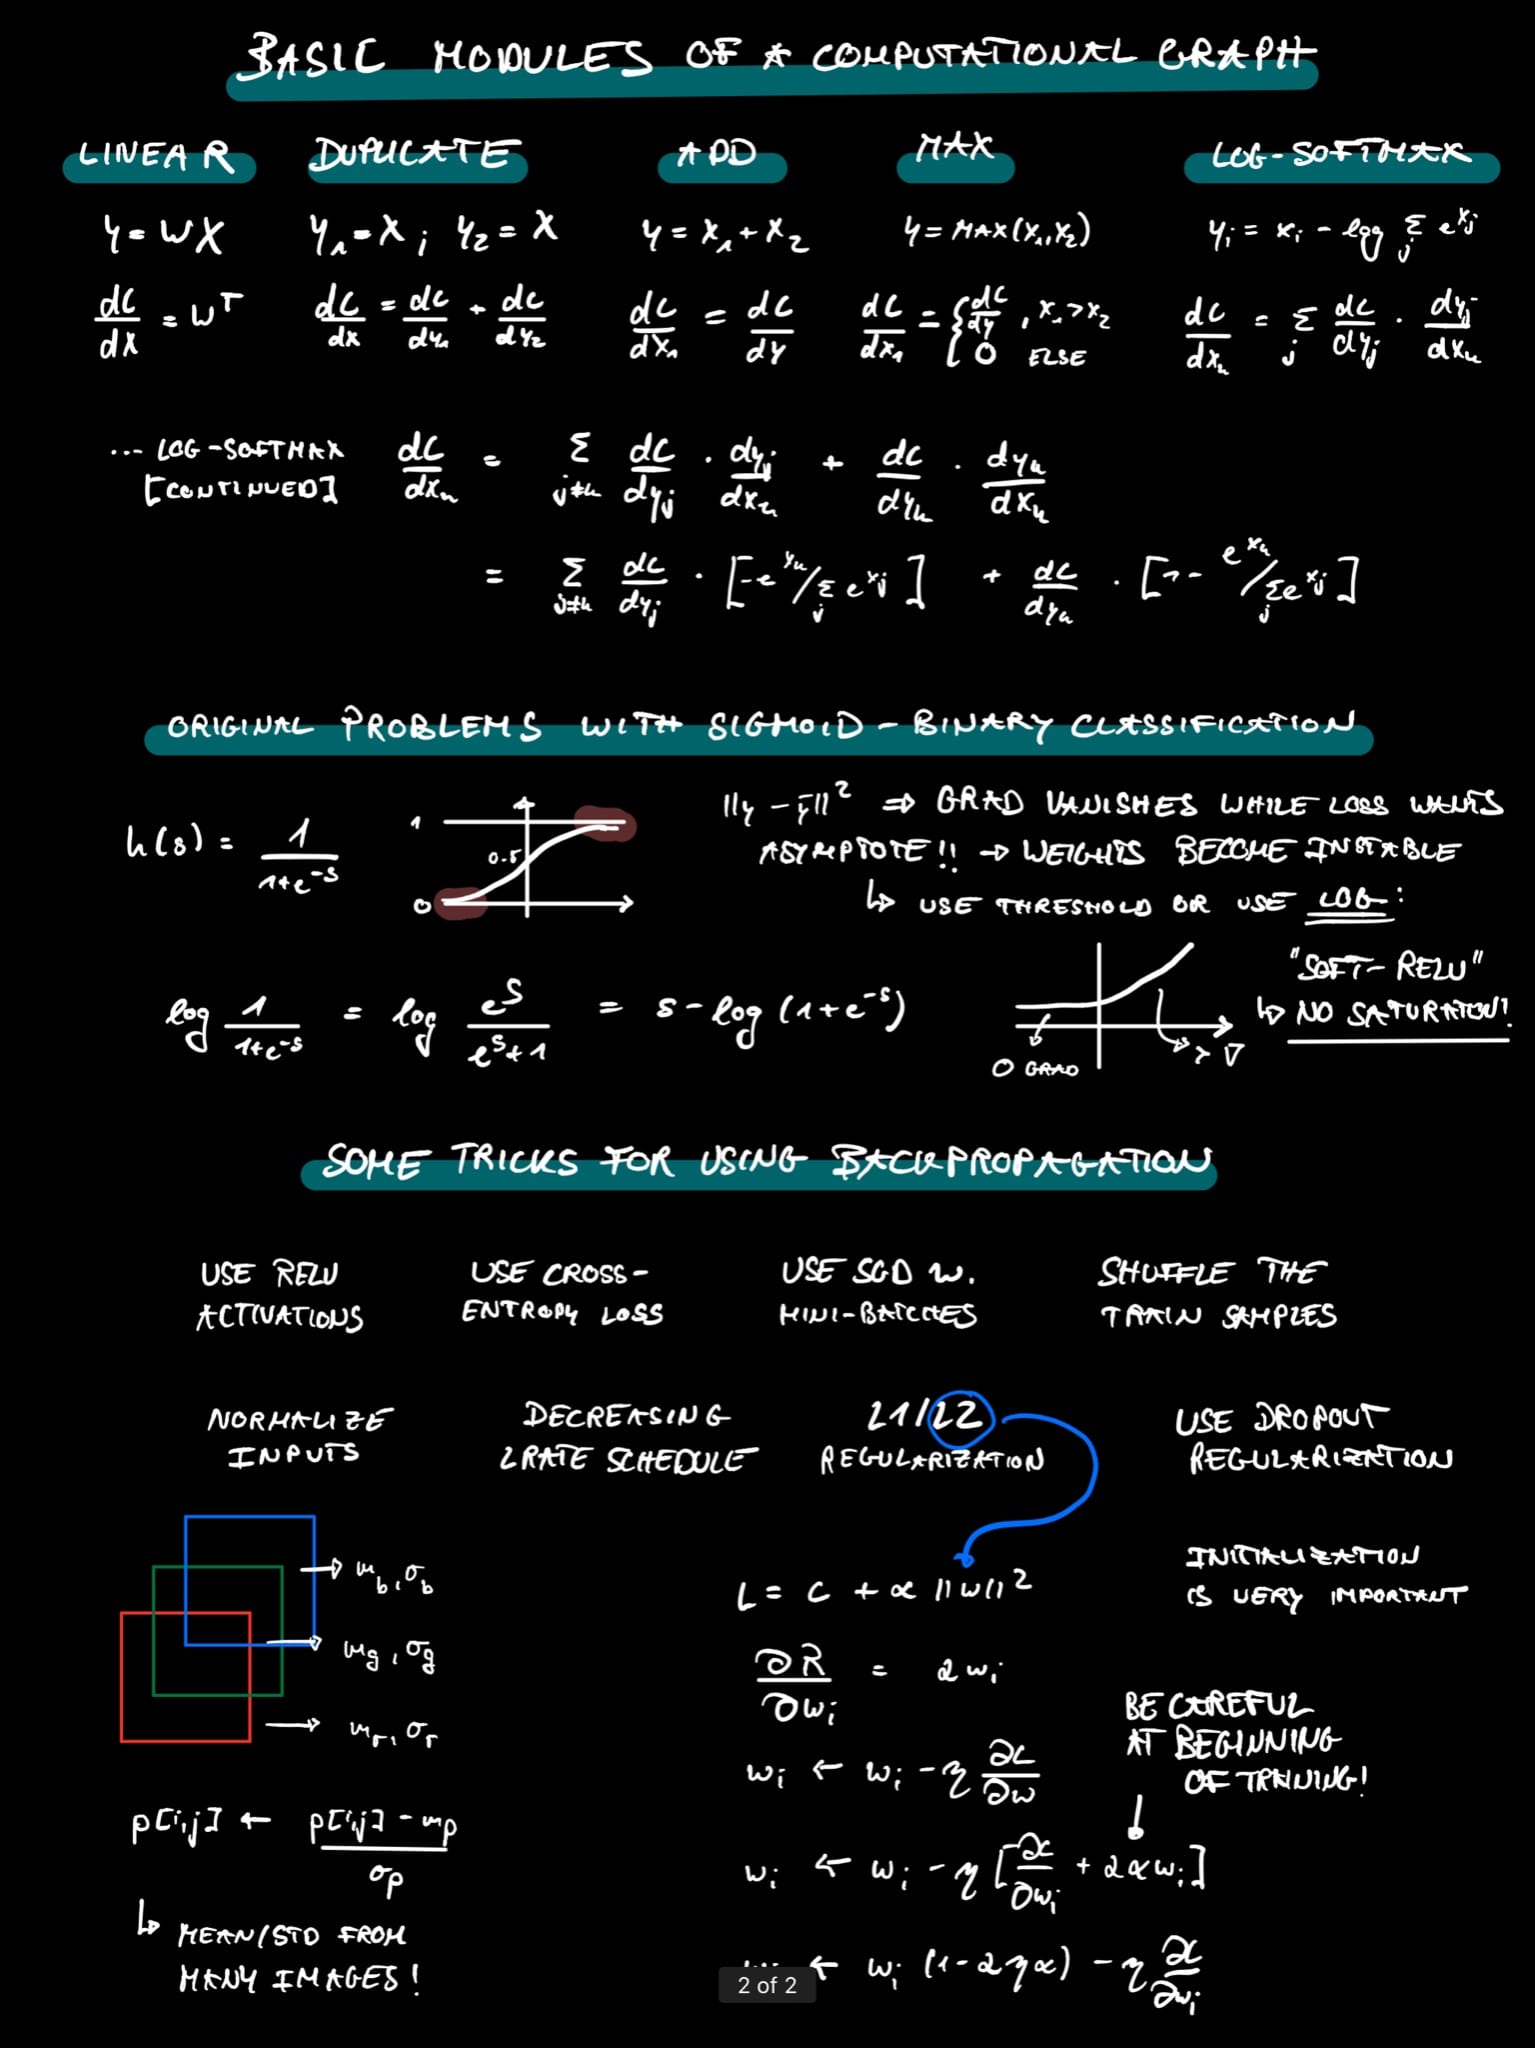 BASIC MODULES OF A COMPUTATIONAL GRAPH
LINEAR DUPLICATE ADD MAX LOG-SOFTMAX
y = WX y₁ = X ; y₂ = X y = X₁ + X₂ y = MAX(X₁,X₂) yᵢ = xᵢ - log Σⱼ e^xⱼ
dC/dX = Wᵀ dC/dX = dC/dy₁ + dC/dy₂ dC/dX₁ = dC/dy dC/dX₁ = { dC/dy , X₁ > X₂ dC/dxₖ = Σⱼ dC/dyⱼ · dyⱼ/dxₖ
0 ELSE
... LOG-SOFTMAX [CONTINUED] dC/dxₖ = Σ j≠k dC/dyⱼ · dyⱼ/dxₖ + dC/dyₖ · dyₖ/dxₖ
= Σ j≠k dC/dyⱼ · [-e^xₖ / Σⱼ e^xⱼ] + dC/dyₖ · [1 - e^xₖ / Σⱼ e^xⱼ]
ORIGINAL PROBLEMS WITH SIGMOID - BINARY CLASSIFICATION
h(s) = 1/(1+e^-s)
1
0.5
0
||y - ȳ||² ⇒ GRAD VANISHES WHILE LOSS WANTS
ASYMPTOTE!! → WEIGHTS BECOME INSTABLE
↳ USE THRESHOLD OR USE LOG:
log 1/(1+e^-s) = log e^s/(e^s+1) = s - log(1+e^-s)
0 GRAD
> ∇
"SOFT-RELU"
↳ NO SATURATION!
SOME TRICKS FOR USING BACKPROPAGATION
USE RELU
ACTIVATIONS
USE CROSS-
ENTROPY LOSS
USE SGD W.
MINI-BATCHES
SHUFFLE THE
TRAIN SAMPLES
NORMALIZE
INPUTS
DECREASING
LRATE SCHEDULE
L1/L2
REGULARIZATION
USE DROPOUT
REGULARIZATION
→ m_b, σ_b
→ m_g, σ_g
→ m_r, σ_r
p[i,j] ← (p[i,j] - m_p)/σ_p
↳ MEAN/STD FROM
MANY IMAGES!
L = C + α ||W||²
∂R/∂wᵢ = 2wᵢ
wᵢ ← wᵢ - η ∂C/∂w
wᵢ ← wᵢ - η [∂C/∂wᵢ + 2αwᵢ]
wᵢ ← wᵢ (1-2ηα) - η ∂C/∂wᵢ
INITIALIZATION
IS VERY IMPORTANT
BE CAREFUL
AT BEGINNING
OF TRAINING!
2 of 2